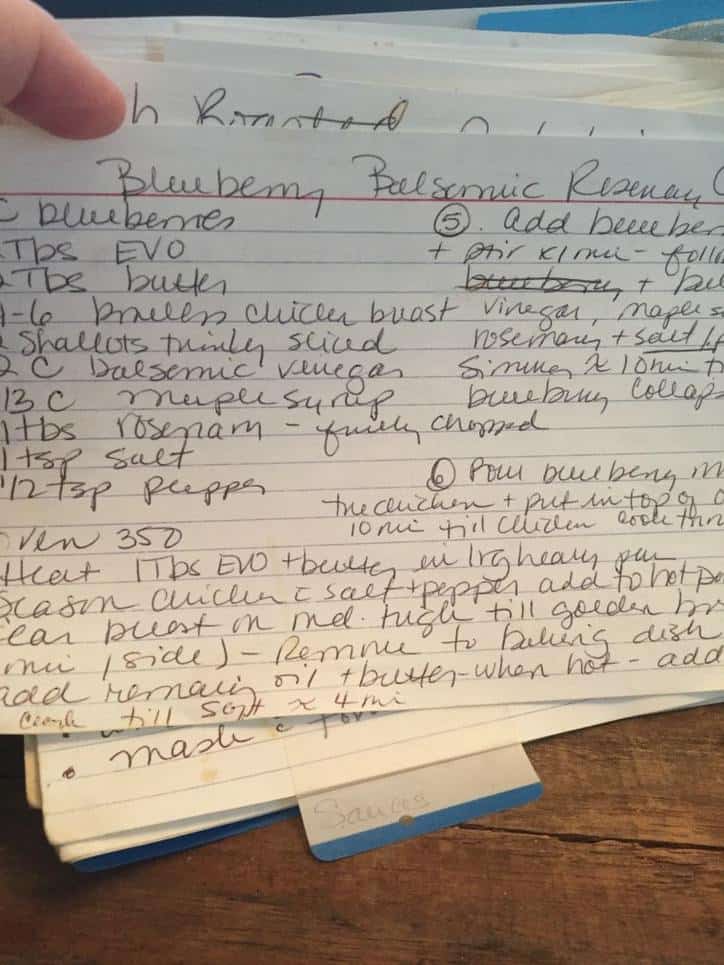 h Roasted
Blueberry Balsemic Rosemary C
C blueberries
Tbs EVO
2 Tbs butter
4-6 bnless chicken breast
Shallots thinly sliced
2 C balsemic venegar
1/3 C maple syrup
1 tbs rosemary - finely chopped
1 tsp salt
1/2 tsp pepper
oven 350
Heat 1 Tbs EVO + butter in lrg heavy pan
Season chicken c salt + pepper add to hot pan
ear breast on med. high till golden br
min / side) - Remove to baking dish
add remain oil + butter - when hot - add
Cook till soft x 4 mi
⑤. add blueber
+ stir x 1 min - foll
blueberry + bal
vinegar, maple s
rosemary + salt / p
simmer x 10 min t
blueberry collaps
⑥ Pour blueberry m
the chicken + put in top of o
10 min till chicken cook thr
• mash c for
Sauces